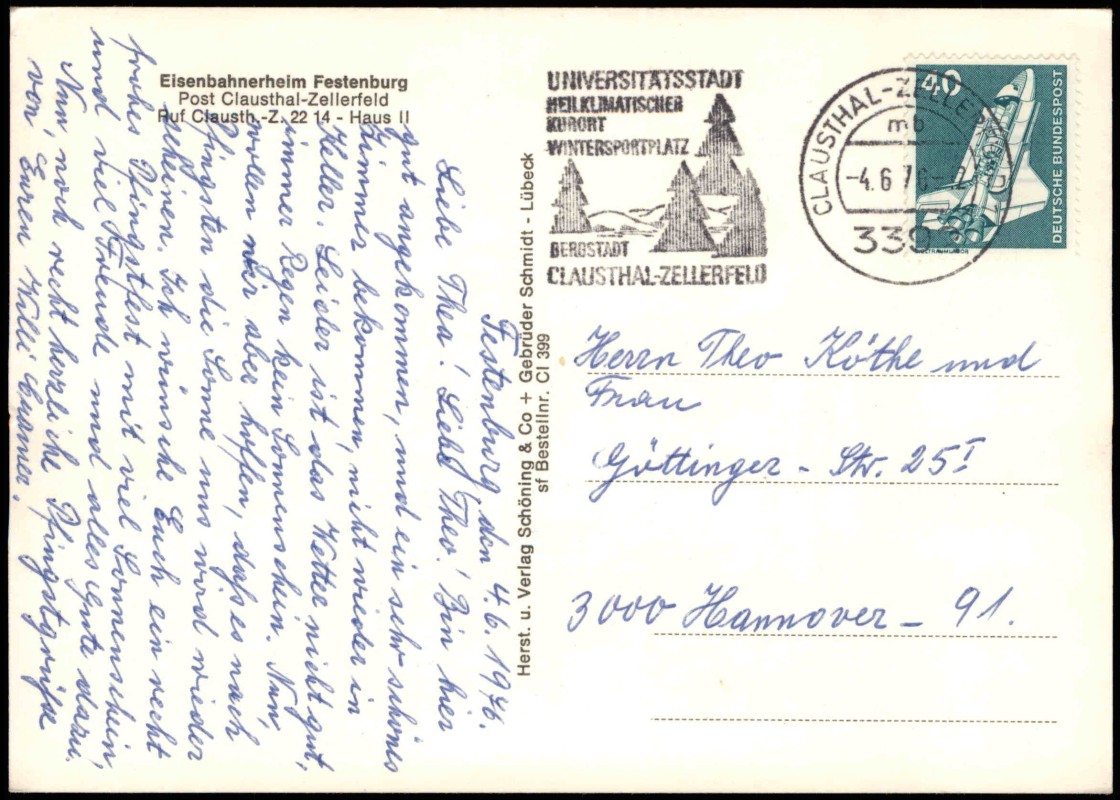 Eisenbahnerheim Festenburg
Post Clausthal-Zellerfeld
Ruf Clausth.-Z. 22 14 - Haus II
UNIVERSITÄTSSTADT
HEILKLIMATISCHER
KURORT
WINTERSPORTPLATZ
BERGSTADT
CLAUSTHAL-ZELLERFELD
CLAUSTHAL-ZELLERF
mb
-4.6.76-12
339
40
DEUTSCHE BUNDESPOST
Herst. u. Verlag Schöning & Co + Gebrüder Schmidt - Lübeck
sf Bestellnr. Cl 399
Festenburg, den 4.6.1976.
Liebe Thea! Lieb. Theo! Bin hier
gut angekommen, und ein sehr schönes
Zimmer bekommen, nicht wieder in
Keller. Leider ist das Wetter nicht gut,
immer Regen kein Sonnenschein. Nun,
wollen wir aber hoffen, dass es nach
Pfingsten die Sonne uns wird wieder
scheinen. Ich wünsche Euch ein recht
frohes Pfingstfest mit viel Sonnenschein,
und viel Freude und alles Gute dazu.
Nun, noch recht herzliche Pfingstgrüße
von Euren Willi
Herrn Theo Köthe und
Frau
Göttinger - Str. 25 I
3000 Hannover - 91.